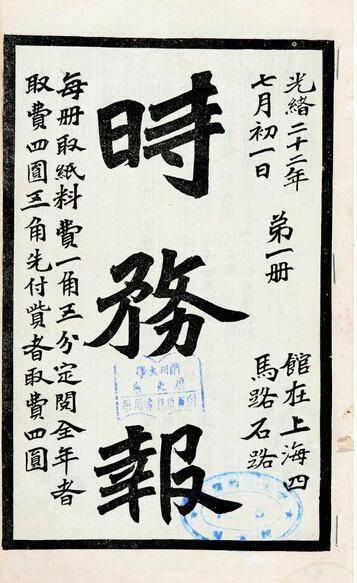 光緒二十二年
七月初一日
第一册
館在上海四
馬路石路
時務報
每册取紙料費一角五分定閱全年者
取費四圓五角先付貲者取費四圓